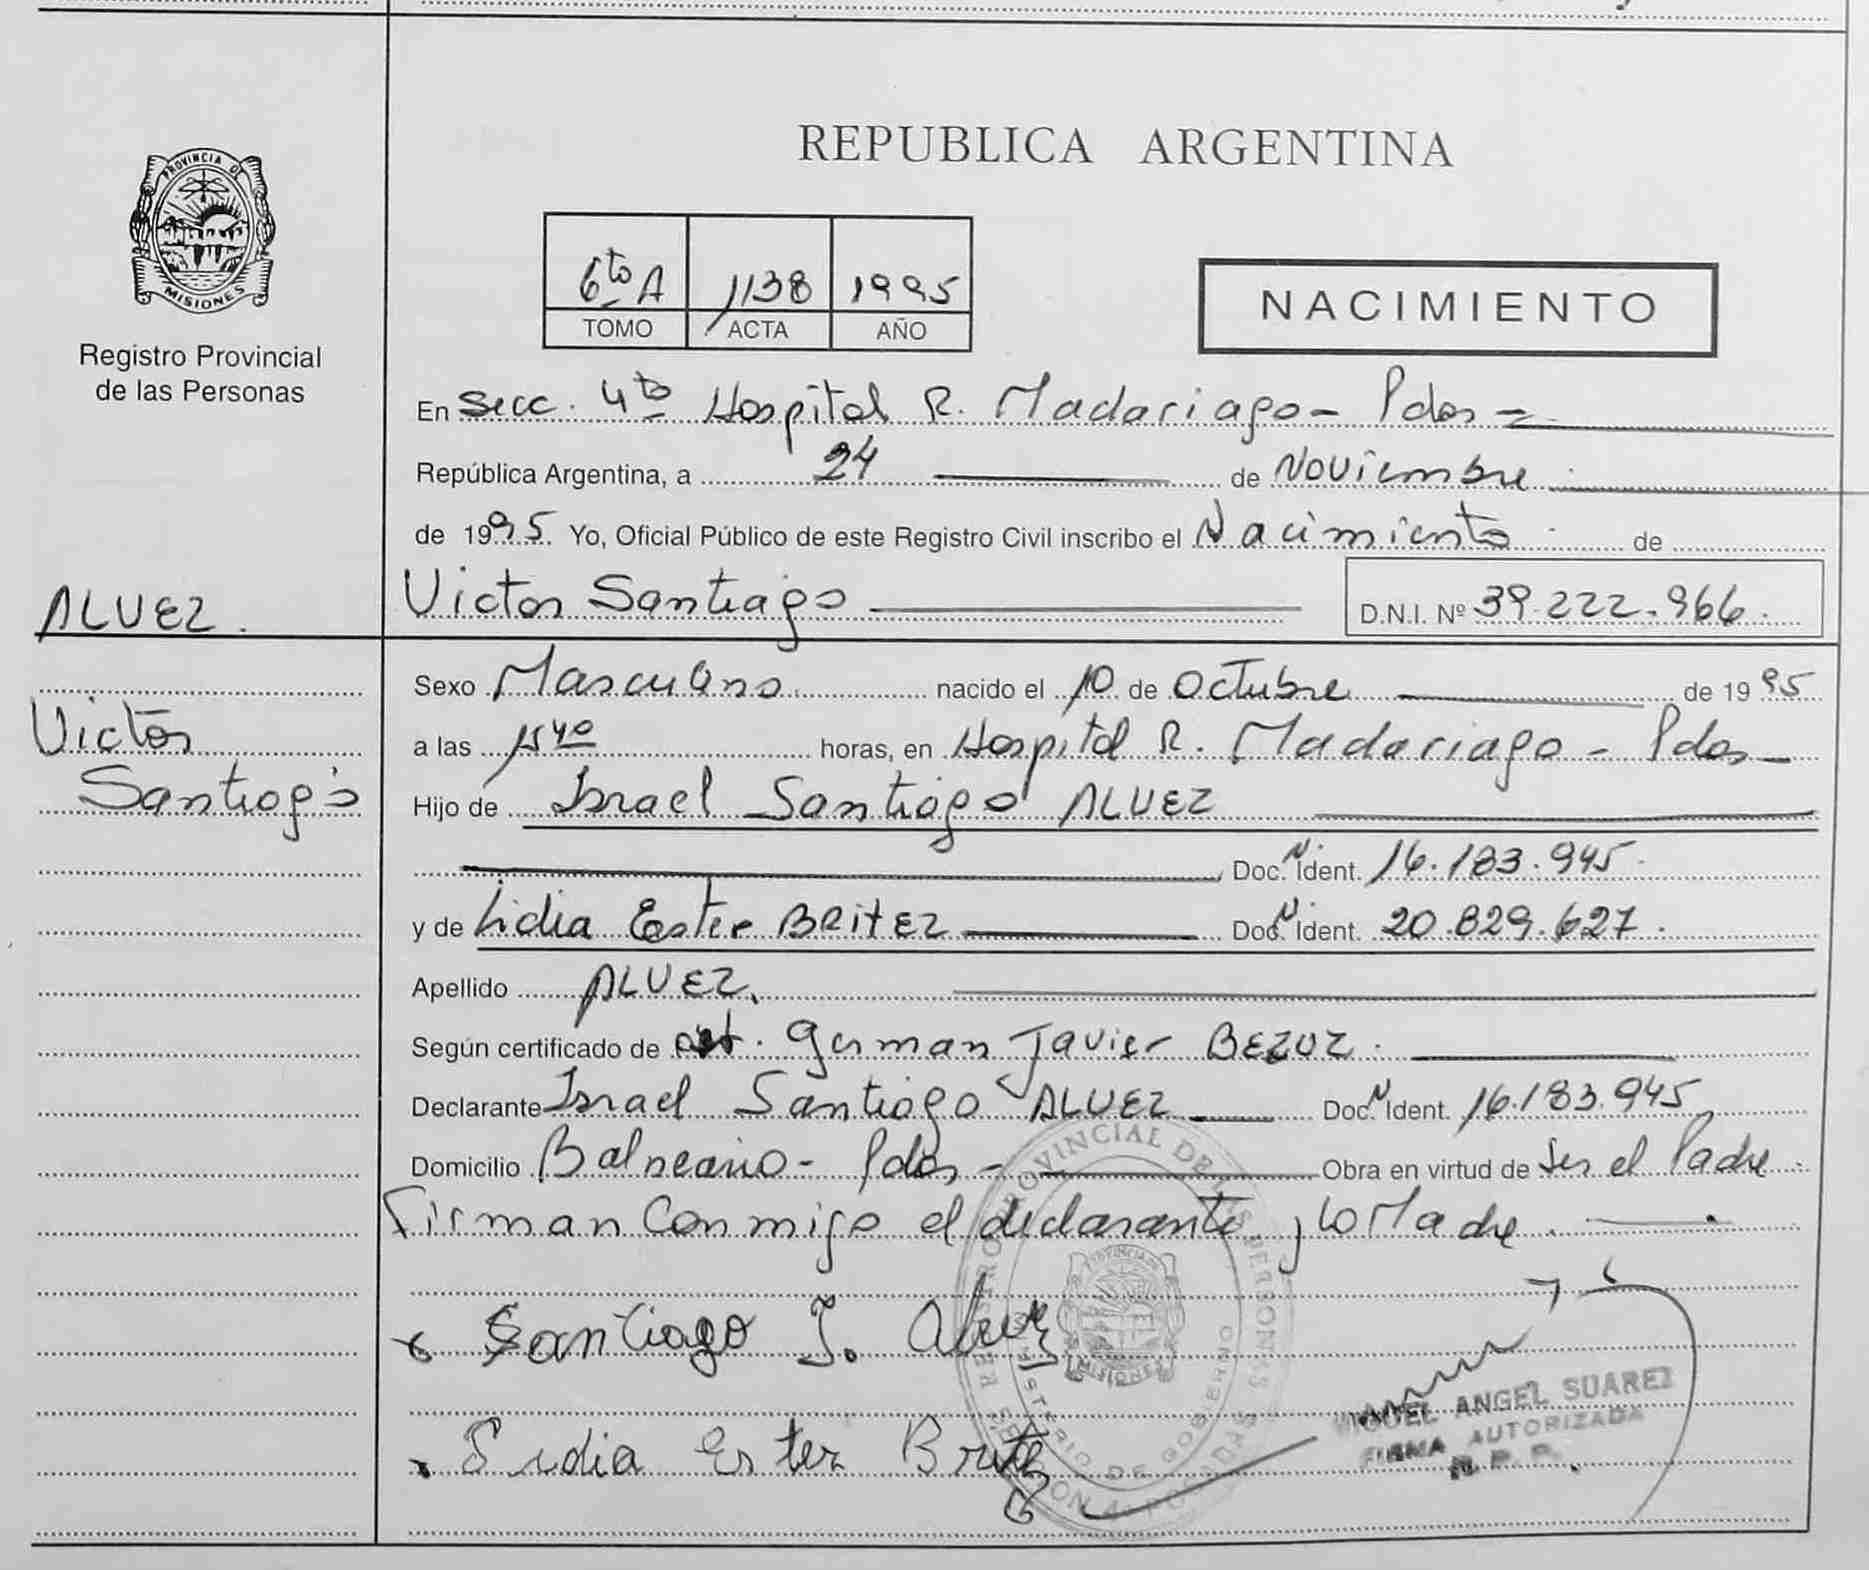 REPUBLICA ARGENTINA
PROVINCIA DE
MISIONES
Registro Provincial
de las Personas
6to A 1138 1995
TOMO ACTA AÑO
NACIMIENTO
En Secc. 4ta Hospital R. Madariaga - Pdas =
República Argentina, a 24 de Noviembre
de 1995 Yo, Oficial Público de este Registro Civil inscribo el Nacimiento de
ALVEZ.
Victor Santiago D.N.I. Nº 39.222.966.
Victor
Santiago
Sexo Masculino nacido el 10 de Octubre de 1995
a las 1540 horas, en Hospital R. Madariaga - Pdas -
Hijo de Israel Santiago ALVEZ
Doc. N. Ident. 16.183.945.
y de Lidia Ester BRITEZ Doc. N. Ident. 20.829.627.
Apellido ALVEZ.
Según certificado de German Javier BEZUZ.
Declarante Israel Santiago ALVEZ Doc. N. Ident. 16.183.945
Domicilio Balneario - Pdas - Obra en virtud de Ser el Padre.
Firman Conmigo el declarante y la Madre.
Santiago I. Alvez
Lidia Ester Britez
REGISTRO PROVINCIAL DE LAS PERSONAS
MINISTERIO DE GOBIERNO
PROVINCIA DE
MISIONES
MIGUEL ANGEL SUAREZ
FIRMA AUTORIZADA
R. P. P.